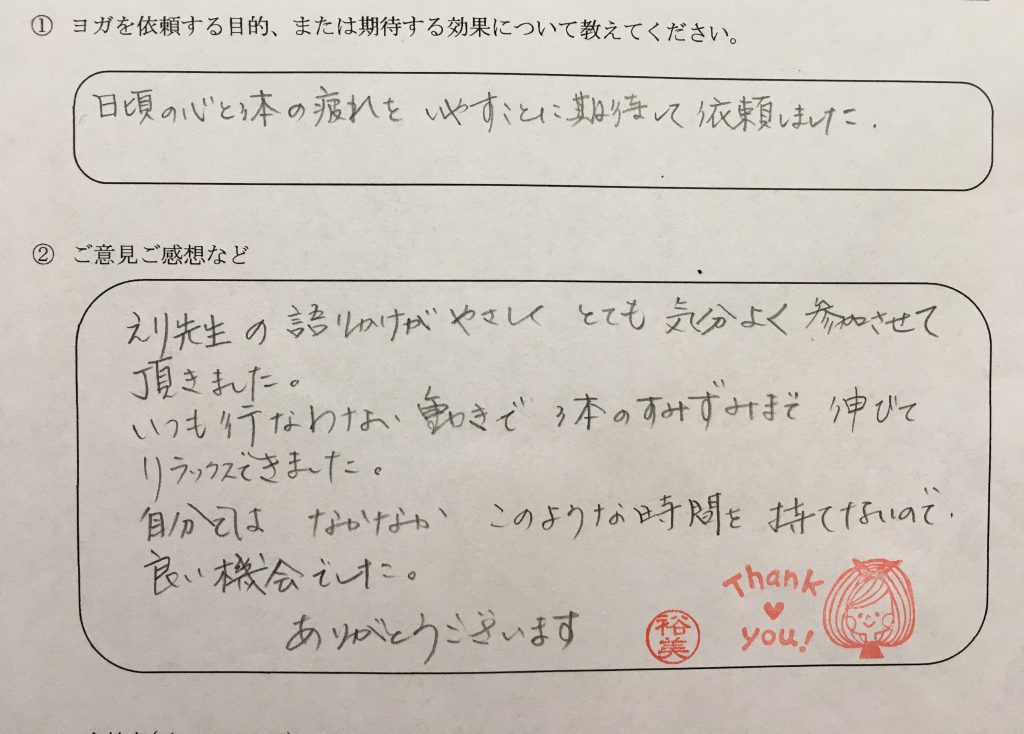 ① ヨガを依頼する目的、または期待する効果について教えてください。
日頃の心と体の疲れを いやすことに期待して依頼しました.
② ご意見ご感想など
えり先生の語りかけがやさしく とても気分よく参加させて
頂きました。
いつも行なわない動きで 体のすみずみまで伸びて
リラックスできました。
自分では なかなか このような時間を持てないので.
良い機会でした。
ありがとうございます
裕美
Thank
you!